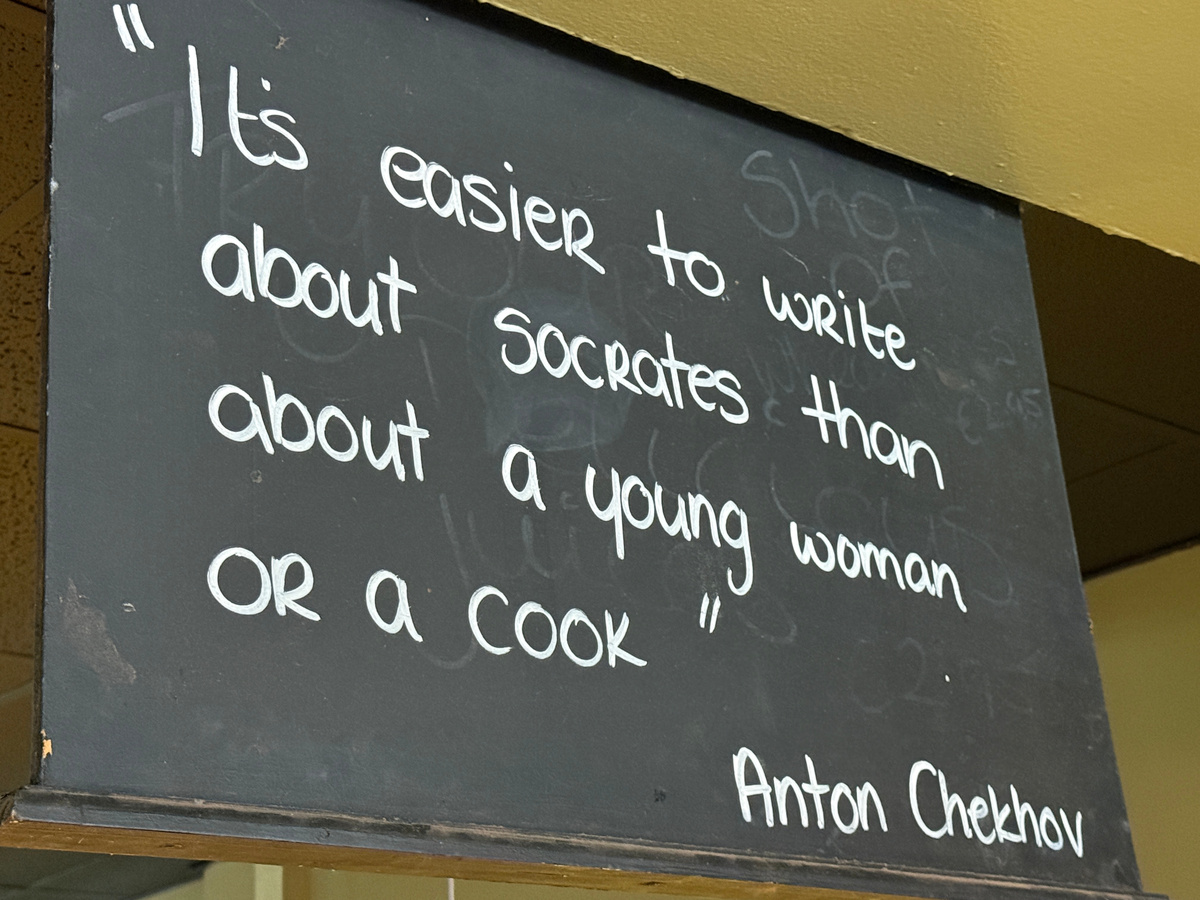 "It's easier to write
about Socrates than
about a young woman
or a cook"
Anton Chekhov
Shot
of